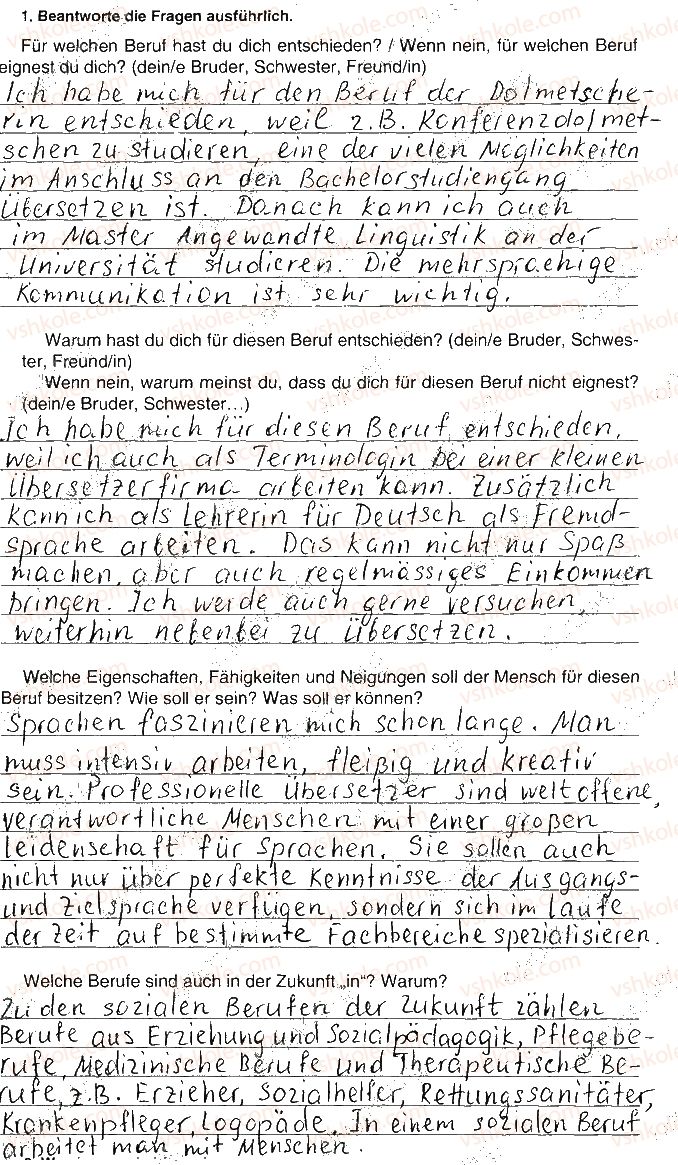 1. Beantworte die Fragen ausführlich.
Für welchen Beruf hast du dich entschieden? / Wenn nein, für welchen Beruf
eignest du dich? (dein/e Bruder, Schwester, Freund/in)
Ich habe mich für den Beruf der Dolmetsche-
rin entschieden, weil z.B. Konferenzdolmet-
schen zu studieren, eine der vielen Möglichkeiten
im Anschluss an den Bachelorstudiengang
Übersetzen ist. Danach kann ich auch
im Master Angewandte Linguistik an der
Universität studieren. Die mehrsprachige
Kommunikation ist sehr wichtig.
Warum hast du dich für diesen Beruf entschieden? (dein/e Bruder, Schwes-
ter, Freund/in)
Wenn nein, warum meinst du, dass du dich für diesen Beruf nicht eignest?
(dein/e Bruder, Schwester...)
Ich habe mich für diesen Beruf entschieden,
weil ich auch als Terminologin bei einer kleinen
Übersetzerfirma arbeiten kann. Zusätzlich
kann ich als Lehrerin für Deutsch als Fremd-
sprache arbeiten. Das kann nicht nur Spaß
machen, aber auch regelmässiges Einkommen
bringen. Ich werde auch gerne versuchen,
weiterhin nebenbei zu übersetzen.
Welche Eigenschaften, Fähigkeiten und Neigungen soll der Mensch für diesen
Beruf besitzen? Wie soll er sein? Was soll er können?
Sprachen faszinieren mich schon lange. Man
muss intensiv arbeiten, fleißig und kreativ
sein. Professionelle Übersetzer sind weltoffene,
verantwortliche Menschen mit einer großen
Leidenschaft für Sprachen. Sie sollen auch
nicht nur über perfekte Kenntnisse der Ausgangs-
und Zielsprache verfügen, sondern sich im Laufe
der Zeit auf bestimmte Fachbereiche spezialisieren.
Welche Berufe sind auch in der Zukunft „in"? Warum?
Zu den sozialen Berufen der Zukunft zählen
Berufe aus Erziehung und Sozialpädagogik, Pflegebe-
rufe, Medizinische Berufe und Therapeutische Be-
rufe, z.B. Erzieher, Sozialhelfer, Rettungssanitäter,
Krankenpfleger, Logopäde. In einem sozialen Beruf
arbeitet man mit Menschen.